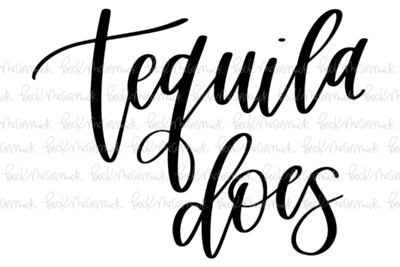 tequila
does